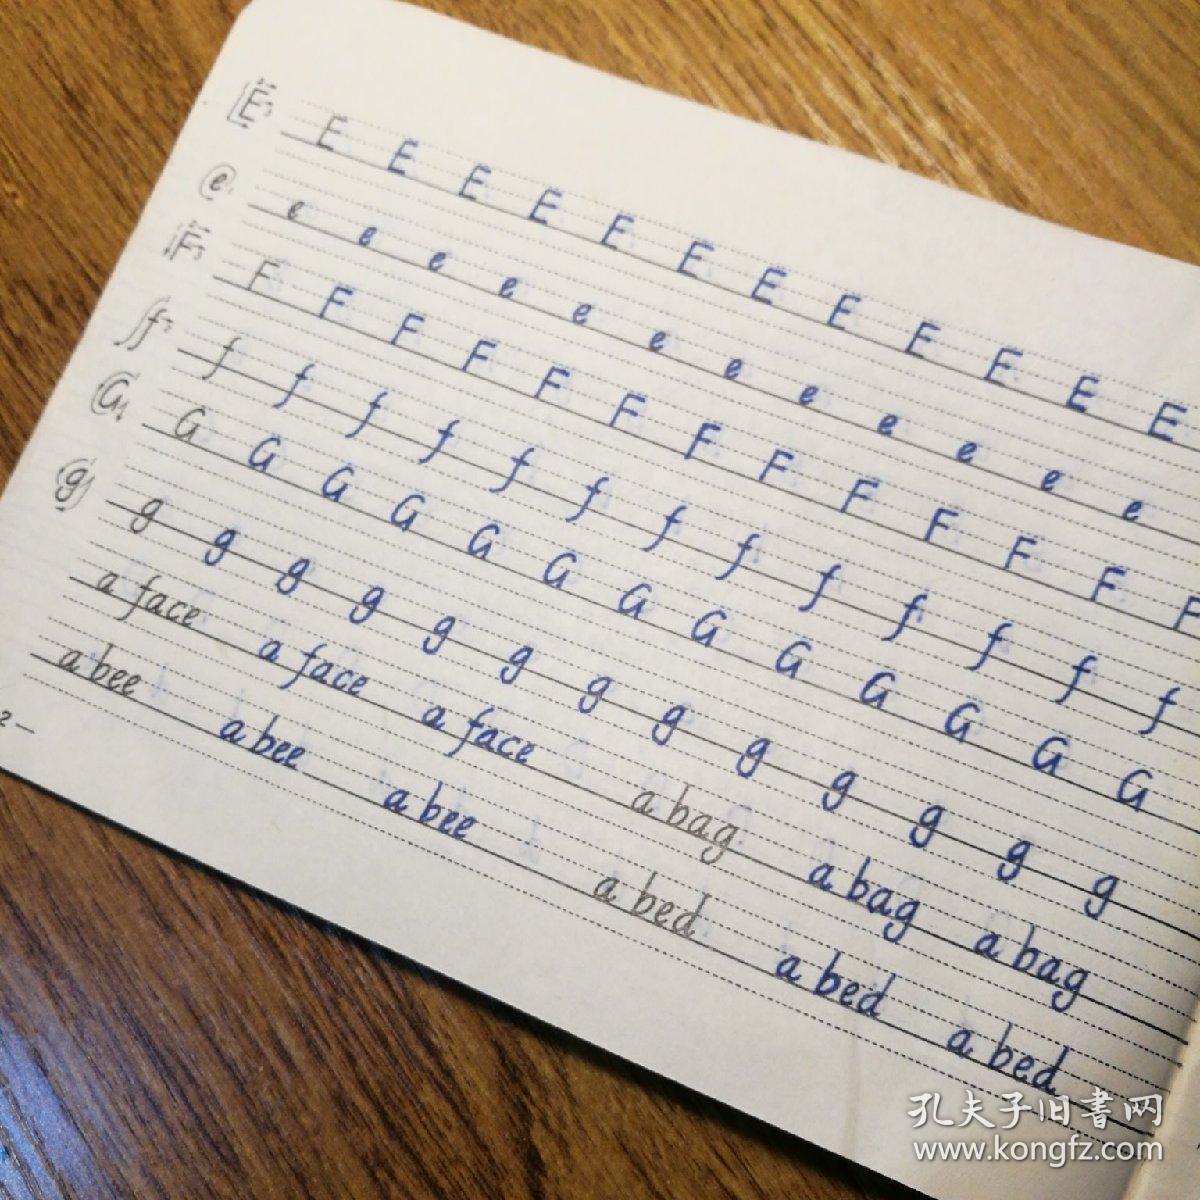 E E E E E E E E E E E E E
e e e e e e e e e e e e e
F F F F F F F F F F F F F F
f f f f f f f f f f f f f f
G G G G G G G G G G G G G G
g g g g g g g g g g g g g g
a face a face a face a bag a bag a bag
a bee a bee a bee a bed a bed a bed
2 —
孔夫子旧书网
www.kongfz.com